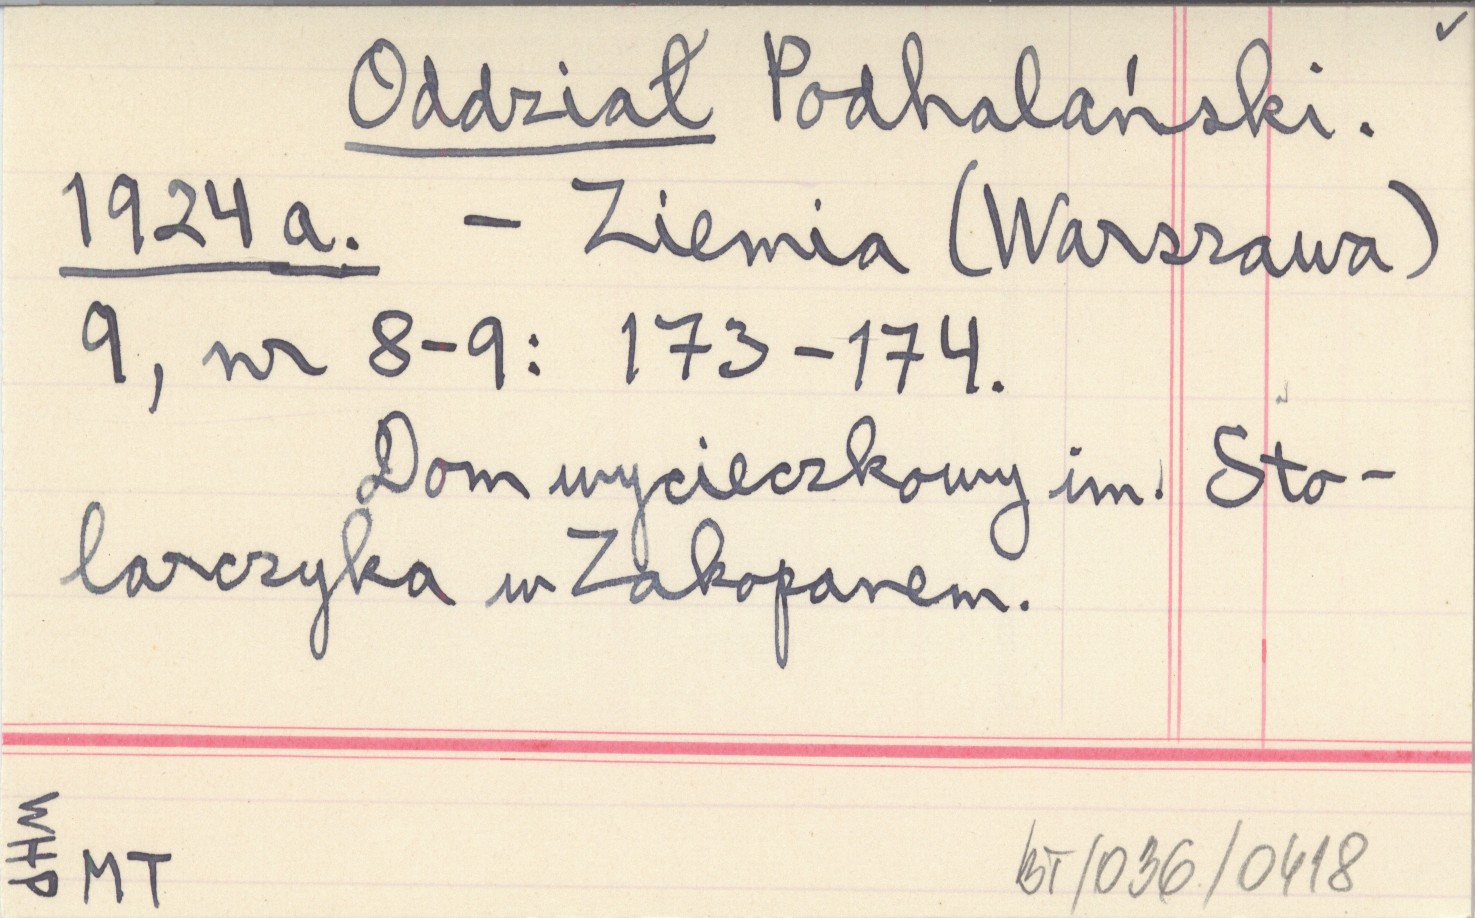 Oddział Podhalański.
1924 a. – Ziemia (Warszawa)
9, nr 8-9: 173-174.
Dom wycieczkowy im. Sto-
larczyka w Zakopanem.
WHP
MT
BT/036/0418